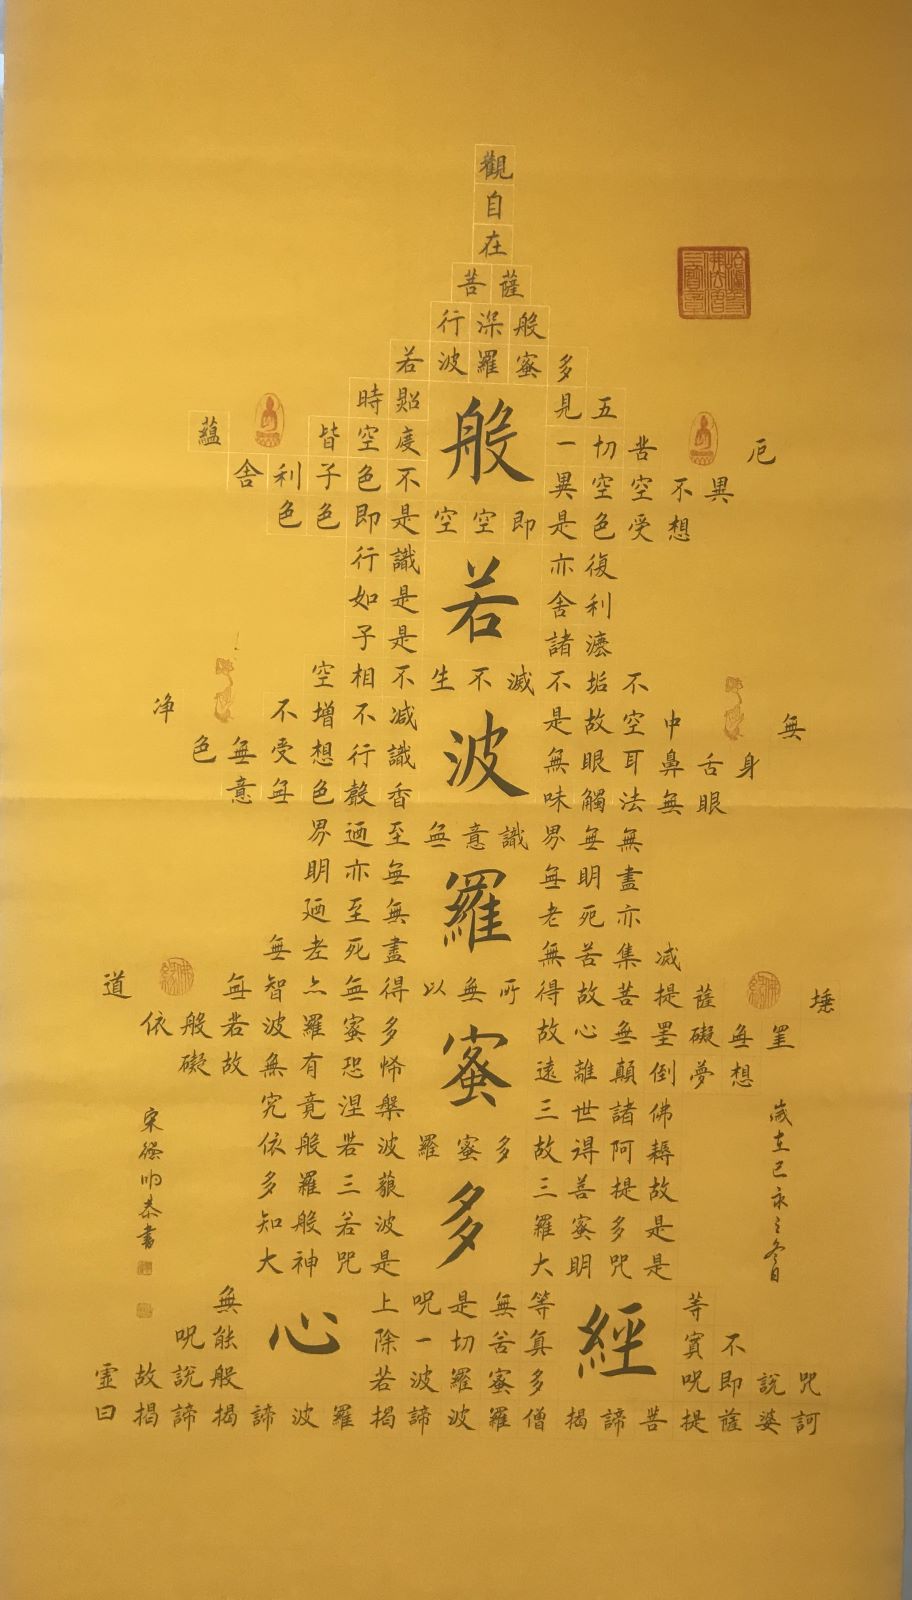 觀
自
在
菩薩
行深般
若波羅蜜多
時照見五
蘊皆空度一切苦厄
舍利子色不異空空不異
色色即是空空即是色受想
行識亦復
如是舍利
子是諸法
空相不生不滅不垢不
净不增不减是故空中無
色無受想行識無眼耳鼻舌身
意無色聲香味觸法無眼
界迺至無意識界無無
明亦無無明盡
廼至無老死亦
無老死盡無苦集减
道無智亦無得以無所得故菩提薩埵
依般若波羅蜜多故心無罣礙無罣
礙故無有恐悕遠離顛倒夢想
究竟涅槃三世諸佛
依般若波羅蜜多故得阿耨
多羅三藐三善提故
知般若波羅蜜多是
大神咒是大明咒是
無上咒是無等等
呪能除一切苦真實不
虛故說般若波羅蜜多呪即說呪
曰揭諦揭諦波羅揭諦波羅僧揭諦菩提薩婆訶
般若波羅蜜多心經